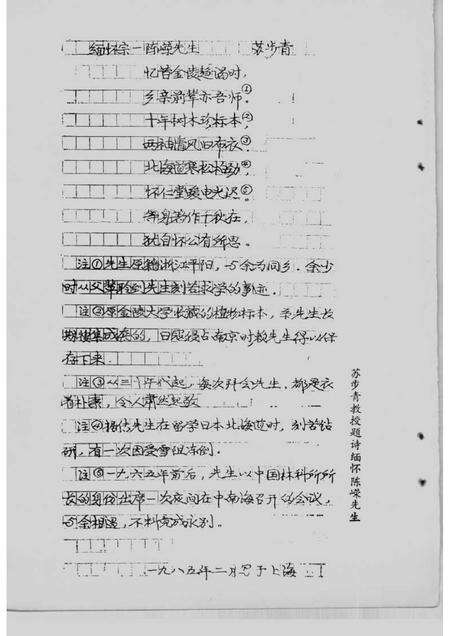 缅怀宗一陈嵘先生 苏步青
忆昔金陵趋谒时,
乡亲前辈亦吾师①。
十年树木珍标本②,
两袖清风旧布衣③。
北海道寒松柏劲④,
怀仁堂暖电光迟⑤。
等身著作千秋在,
犹自怀公有所思。
注①先生原籍浙江平阳,与余为同乡。余少
时从父辈聆到先生刻苦求学的事迹。
注②原金陵大学收藏的植物标本,系先生长
期搜集成存的,日寇侵占南京时赖先生得以保
存下来。
注③从三十年代起,每次拜会先生,都是衣
着朴素,令人肃然起敬
注④据传先生在留学日本北海道时,刻苦钻
研,有一次因受雪阻冻倒。
注⑤一九六五年前后,先生以中国林科所所
长的身份出席一次夜间在中南海召开的会议,
与余相遇,不料竟成永别。
一九八五年二月 于上海
苏步青教授题诗缅怀陈嵘先生